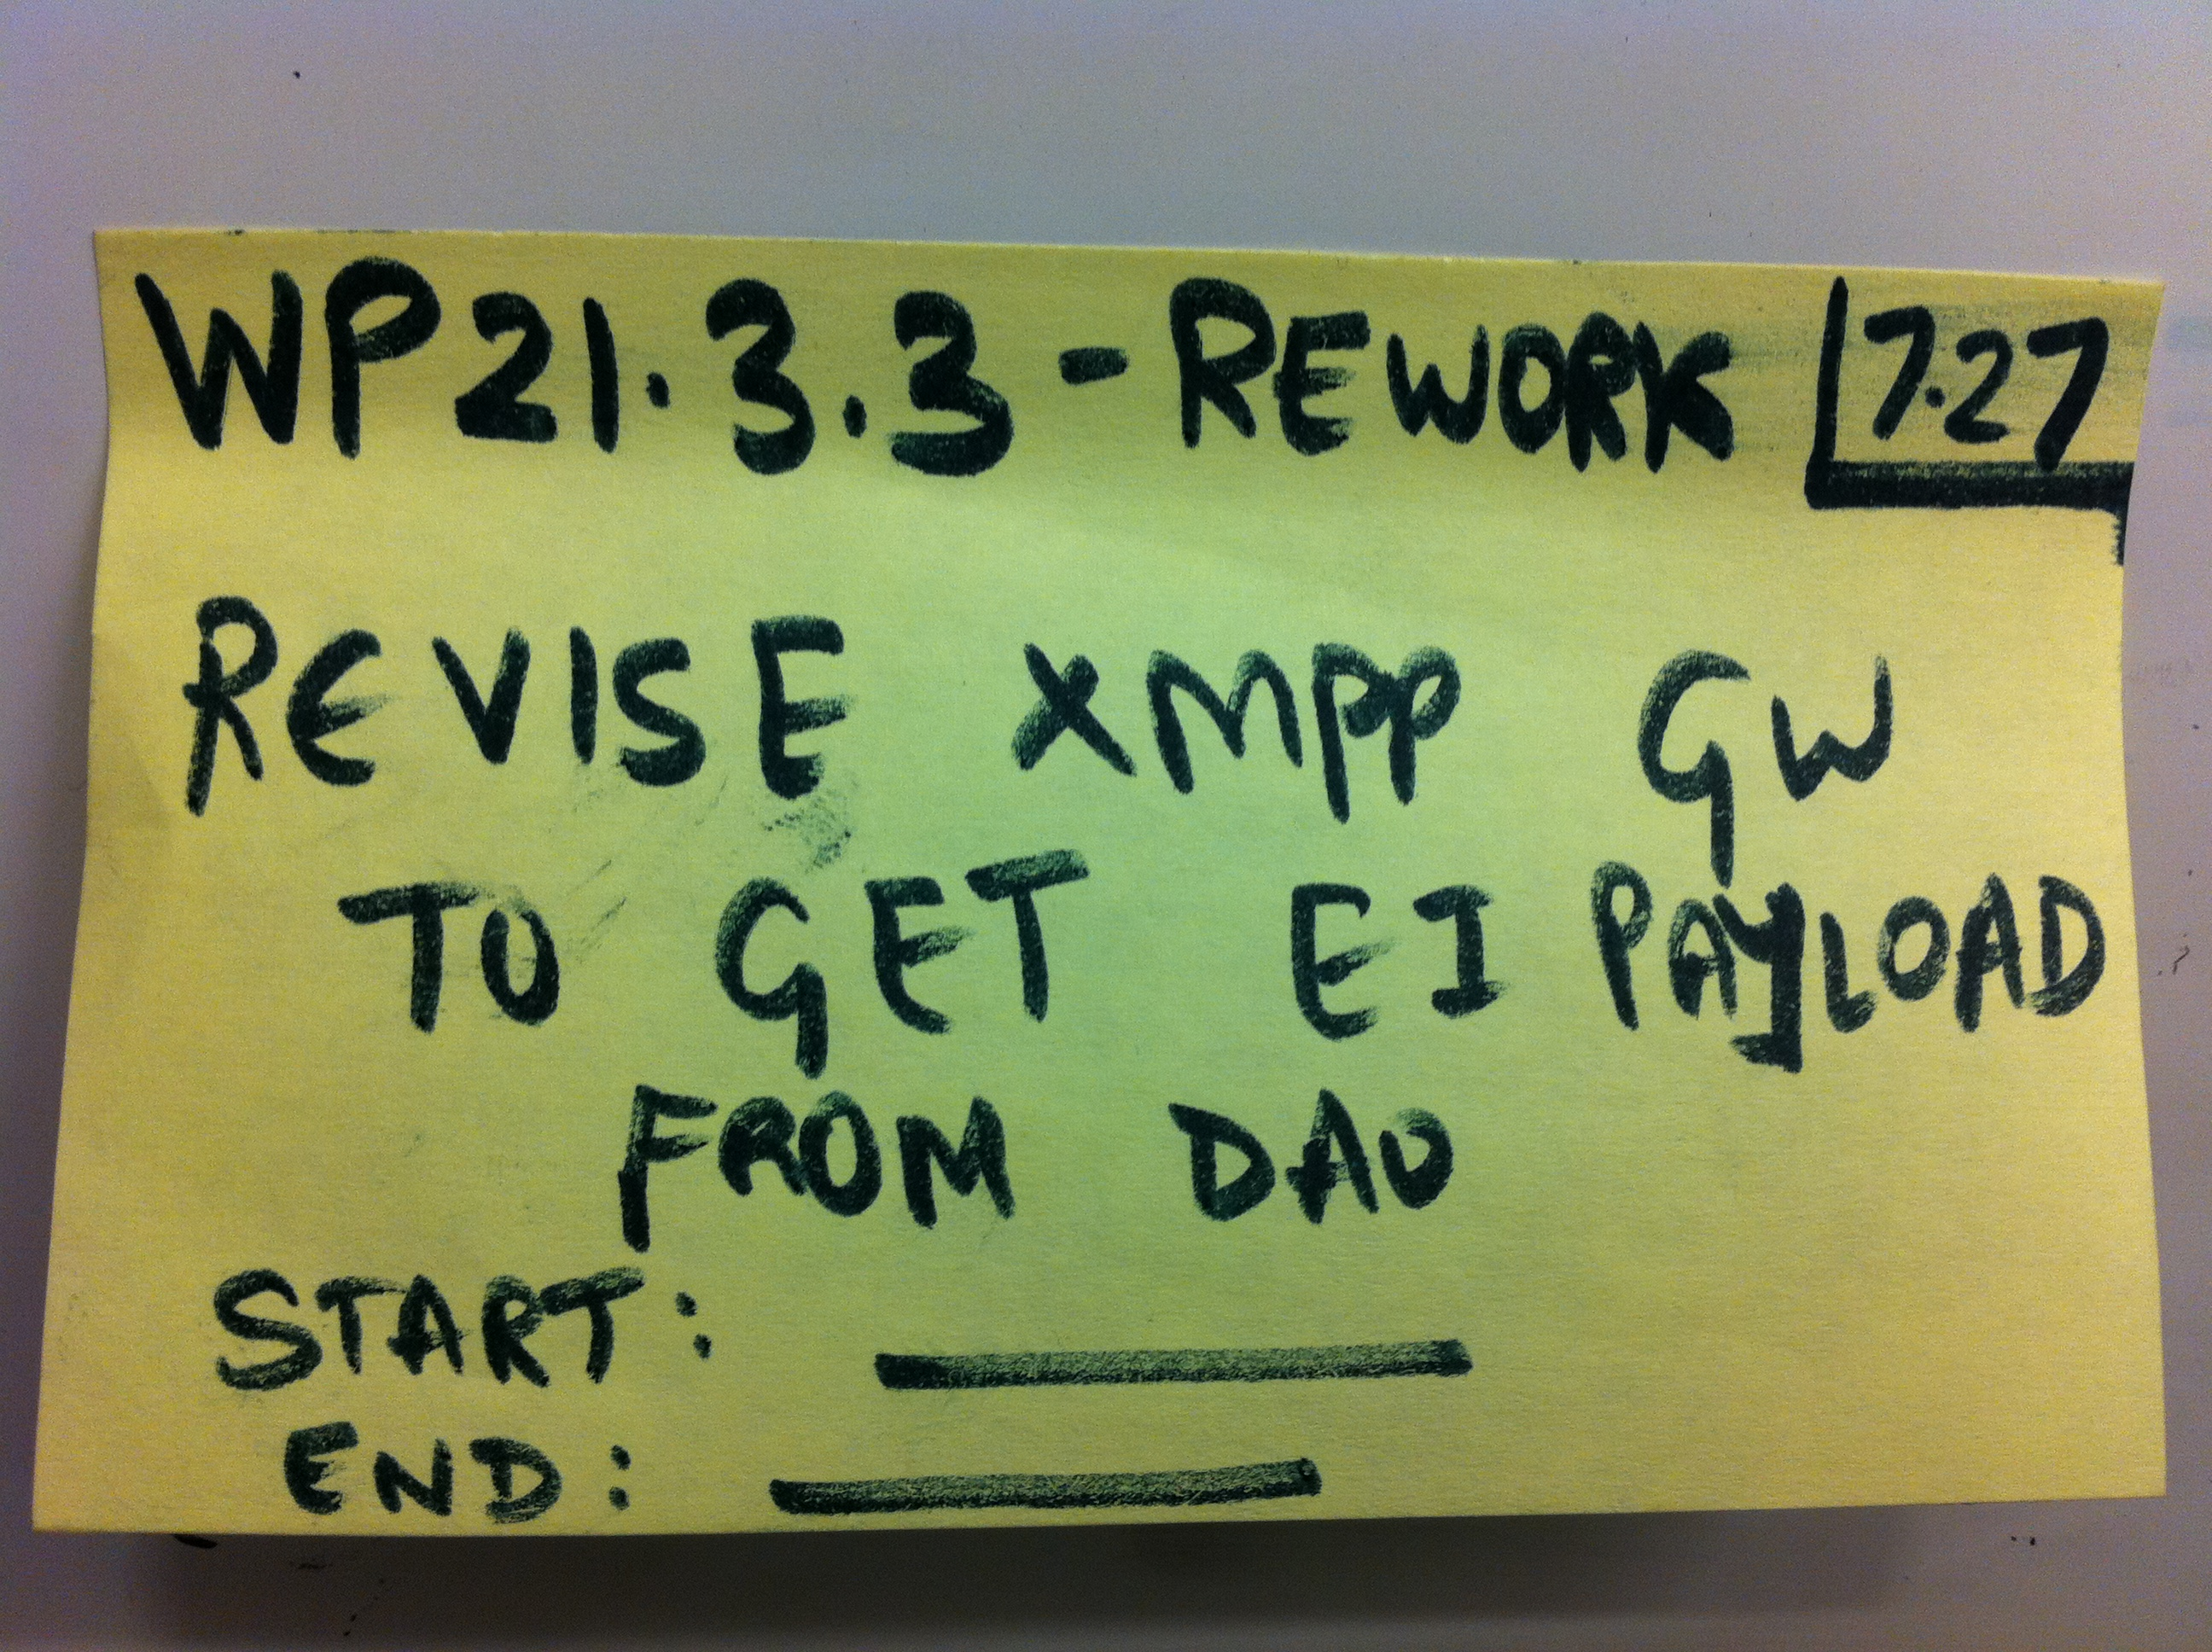 WP21.3.3 - REWORK 7.27
REVISE XMPP GW
TO GET EI PAYLOAD
FROM DAO
START:
END: